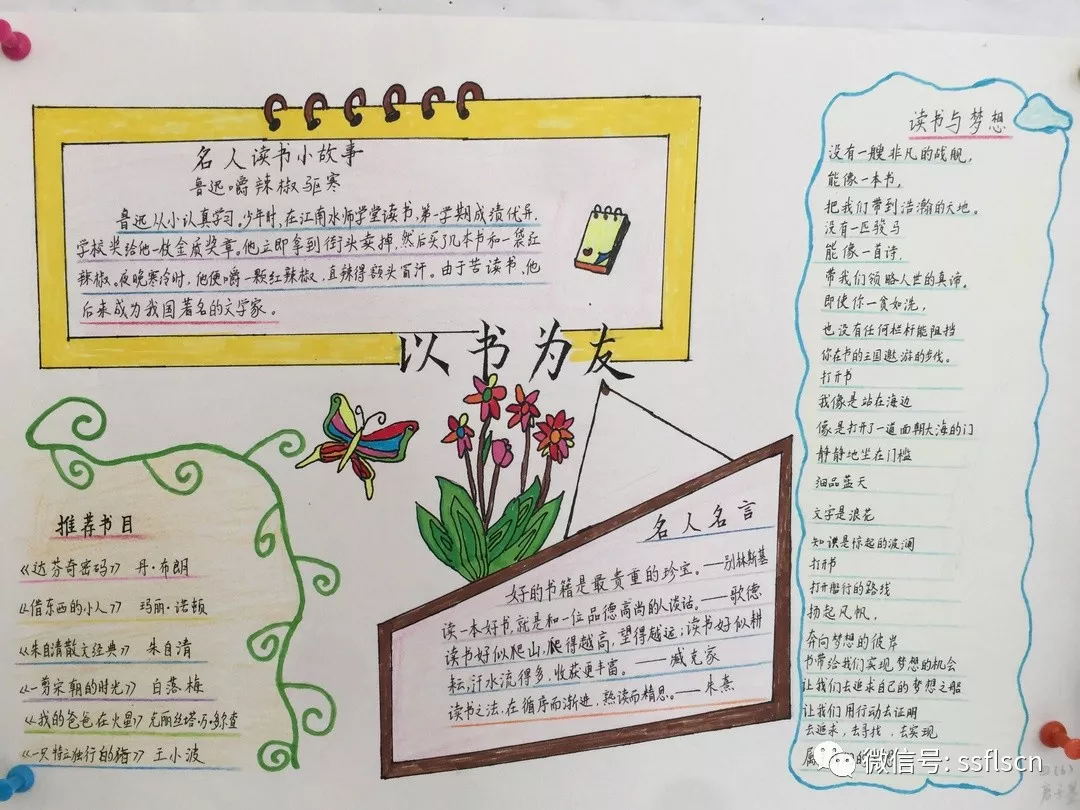 名人读书小故事
鲁迅嚼辣椒驱寒
鲁迅从小认真学习。少年时,在江南水师学堂读书,第一学期成绩优异,
学校奖给他一枚金质奖章。他立即拿到街头卖掉,然后买了几本书和一袋红
辣椒。夜晚寒冷时,他便嚼一颗红辣椒,直辣得额头冒汗。由于苦读书,他
后来成为我国著名的文学家。
以书为友
推荐书目
《达芬奇密码》 丹·布朗
《借东西的小人》 玛丽·诺顿
《朱自清散文经典》 朱自清
《一剪宋朝的时光》 白落梅
《我的爸爸在火星》 克丽丝塔·
《一只特立独行的猪》 王小波
名人名言
好的书籍是最贵重的珍宝。——别林斯基
读一本好书,就是和一位品德高尚的人谈话。——歌德
读书好似爬山,爬得越高,望得越远;读书好似耕
耘,汗水流得多,收获更丰富。——臧克家
读书之法,在循序而渐进,熟读而精思。——朱熹
读书与梦想
没有一艘非凡的战舰,
能像一本书,
把我们带到浩瀚的天地。
没有一匹骏马
能像一首诗,
带我们领略人世的真谛。
即使你一贫如洗,
也没有任何栏杆能阻挡
你在书的王国遨游的步伐。
打开书
我像是站在海边
像是打开了一道面朝大海的门
静静地坐在门槛
细品蓝天
文字是浪花
知识是惊起的波澜
打开书
打开船行的路线
扬起风帆,
奔向梦想的彼岸
书带给我们实现梦想的机会
让我们去追求自己的梦想之船
让我们用行动去证明
去追求,去寻找,去实现
属
微信号: ssflscn